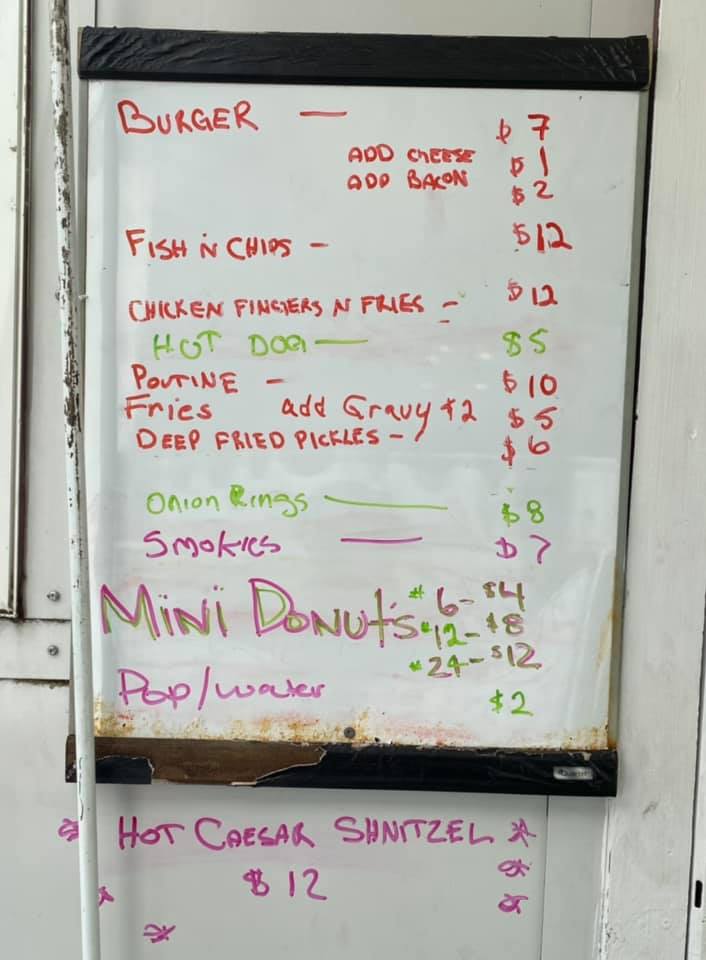 BURGER — $7
ADD CHEESE $1
ADD BACON $2
FISH N CHIPS - $12
CHICKEN FINGERS N FRIES - $12
HOT DOG — $5
POUTINE - $10
Fries add Gravy $2 $5
DEEP FRIED PICKLES - $6
Onion Rings — $8
SMOKIES — $7
MINI DONUT'S # 6 - $4
# 12 - $8
# 24 - $12
Pop/water $2
HOT CAESAR SHNITZEL
$12